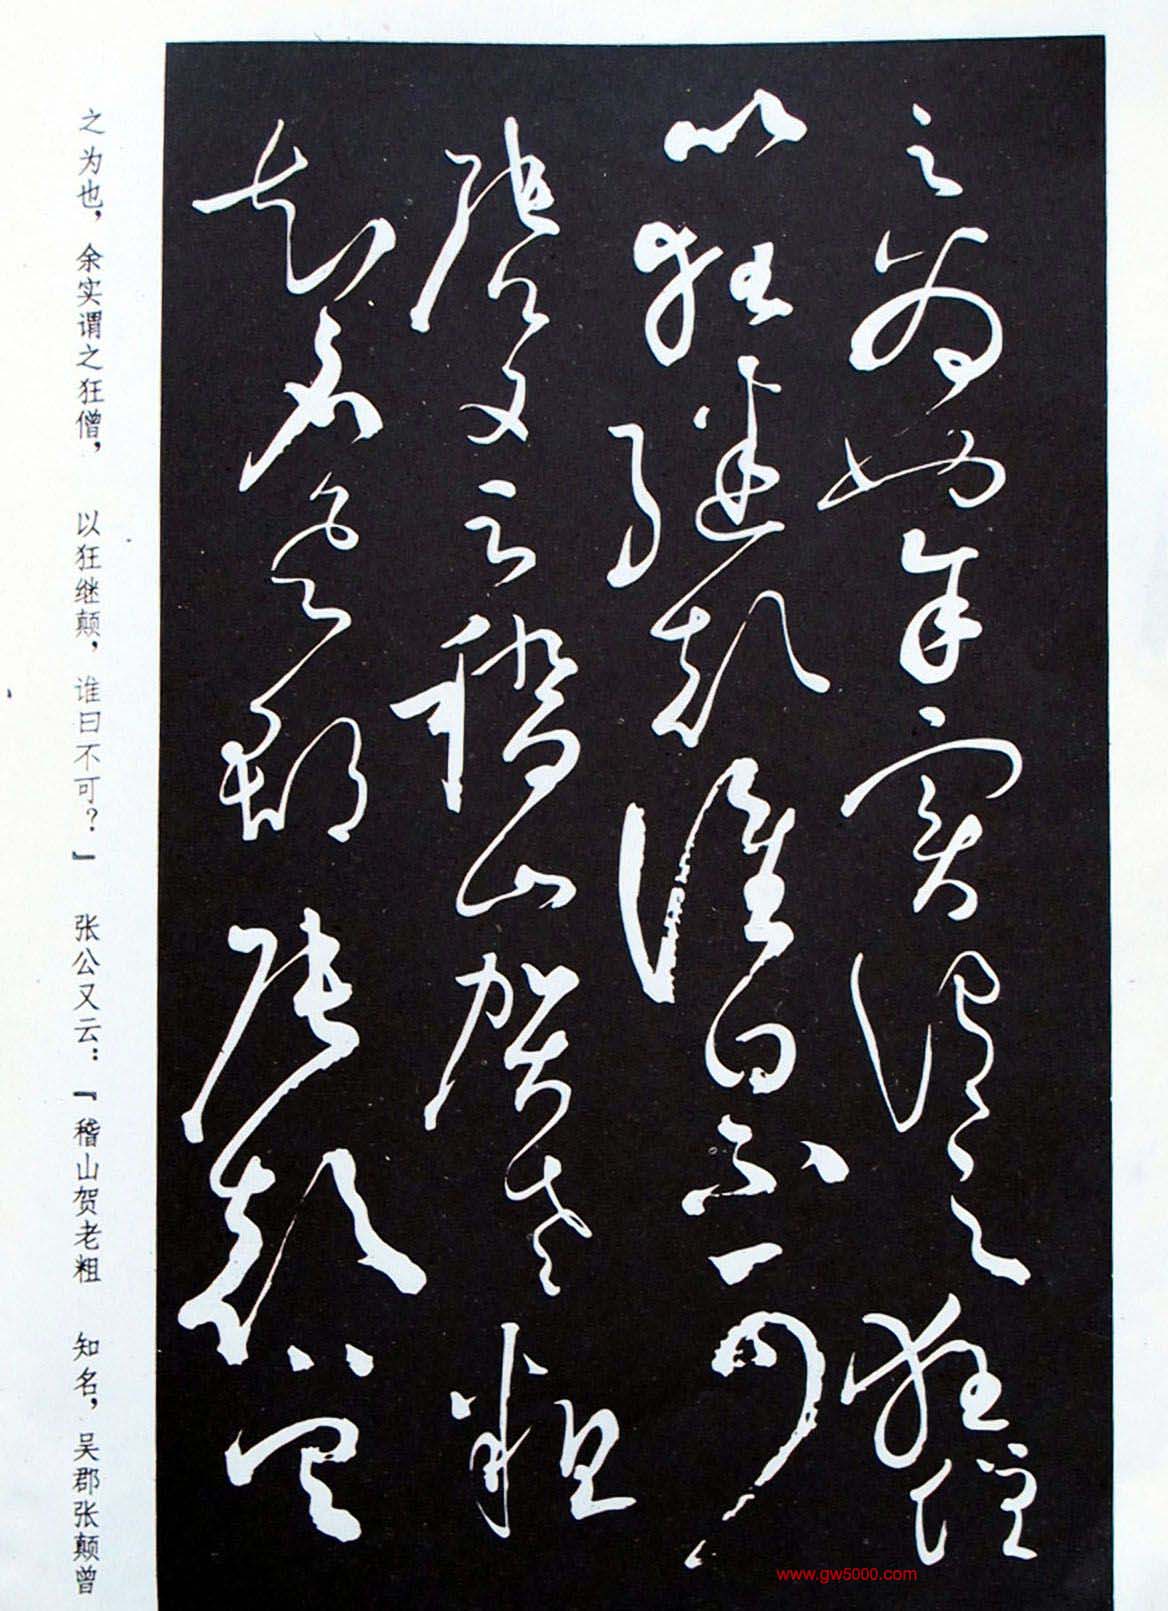 之為也余實謂之狂僧
以狂繼顛誰曰不可
張公又云稽山賀老粗
知名吳郡張顛曾
之为也，余实谓之狂僧， 以狂继颠，谁曰不可？』 张公又云：『稽山贺老粗 知名，吴郡张颠曾
www.gw5000.com